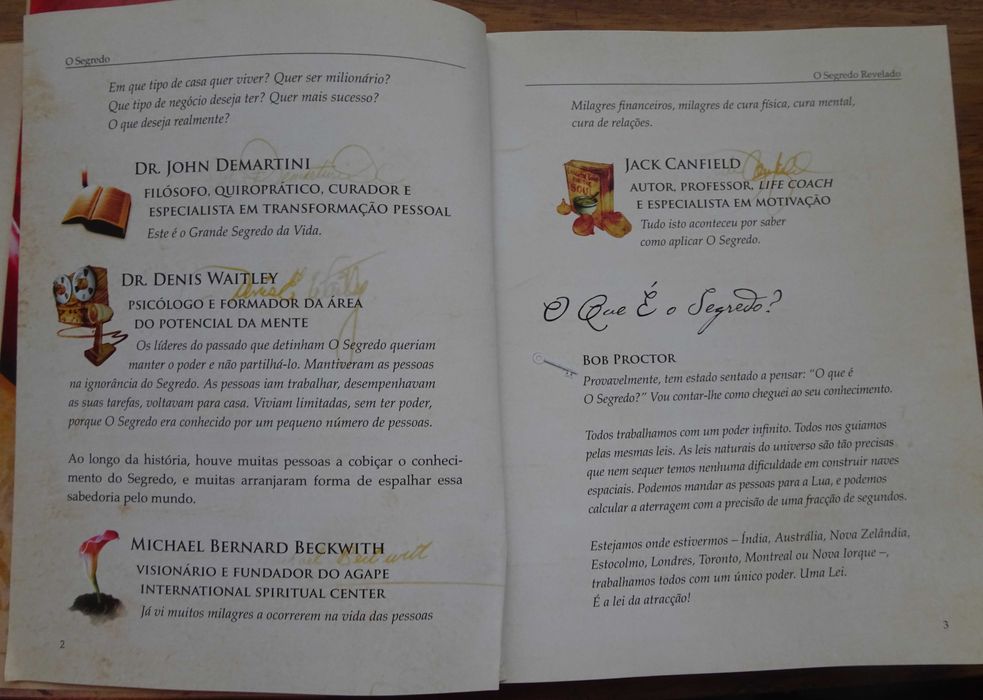 O Segredo
Em que tipo de casa quer viver? Quer ser milionário?
Que tipo de negócio deseja ter? Quer mais sucesso?
O que deseja realmente?
Dr. John Demartini
filósofo, quiroprático, curador e
especialista em transformação pessoal
Este é o Grande Segredo da Vida.
Dr. Denis Waitley
psicólogo e formador da área
do potencial da mente
Os líderes do passado que detinham O Segredo queriam
manter o poder e não partilhá-lo. Mantiveram as pessoas
na ignorância do Segredo. As pessoas iam trabalhar, desempenhavam
as suas tarefas, voltavam para casa. Viviam limitadas, sem ter poder,
porque O Segredo era conhecido por um pequeno número de pessoas.
Ao longo da história, houve muitas pessoas a cobiçar o conheci-
mento do Segredo, e muitas arranjaram forma de espalhar essa
sabedoria pelo mundo.
Michael Bernard Beckwith
visionário e fundador do Agape
International Spiritual Center
Já vi muitos milagres a ocorrerem na vida das pessoas
2
O Segredo Revelado
Milagres financeiros, milagres de cura física, cura mental,
cura de relações.
Jack Canfield
autor, professor, life coach
e especialista em motivação
Tudo isto aconteceu por saber
como aplicar O Segredo.
O Que É o Segredo?
Bob Proctor
Provavelmente, tem estado sentado a pensar: "O que é
O Segredo?" Vou contar-lhe como cheguei ao seu conhecimento.
Todos trabalhamos com um poder infinito. Todos nos guiamos
pelas mesmas leis. As leis naturais do universo são tão precisas
que nem sequer temos nenhuma dificuldade em construir naves
espaciais. Podemos mandar as pessoas para a Lua, e podemos
calcular a aterragem com a precisão de uma fracção de segundos.
Estejamos onde estivermos – Índia, Austrália, Nova Zelândia,
Estocolmo, Londres, Toronto, Montreal ou Nova Iorque –,
trabalhamos todos com um único poder. Uma Lei.
É a lei da atracção!
3